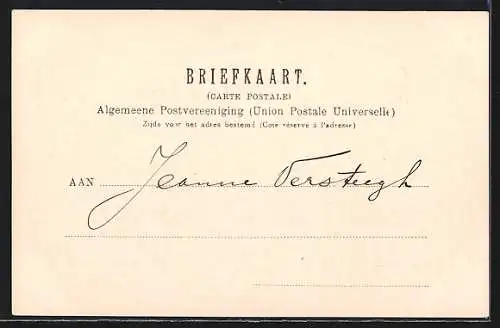 BRIEFKAART.
(CARTE POSTALE)
Algemeene Postvereeniging (Union Postale Universelle)
Zijde voor het adres bestemd (Côté réservé à l'adresse)
AAN Jeanne Versteegh